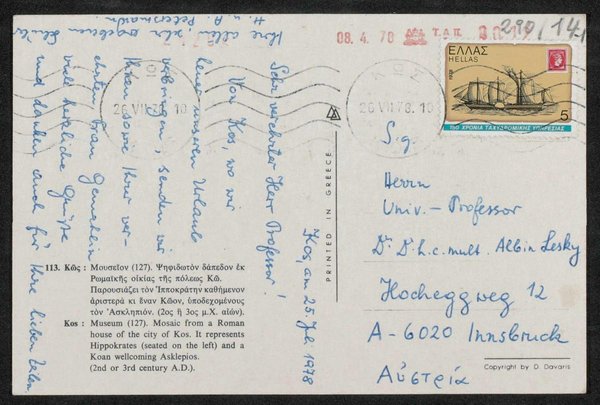 Kos am 25. Juli 1978
Sehr verehrter Herr Professor!
Von Kos, wo wir
heuer unseren Urlaub
verbringen, senden wir
Ihnen sowie Ihrer ver-
ehrten Frau Gemahlin
viele herzliche Grüße
und danken auch für Ihre lieben Zeilen.
Ihre allen, sehr ergebenen
H. u. A. Petersmann
08. 4. 70
ΤΑΠ
290/141
26 VII 78. 10
26 VII 78. 10
ΕΛΛΑΣ
HELLAS
1978
5
150 ΧΡΟΝΙΑ ΤΑΧΥΔΡΟΜΙΚΗΣ ΥΠΗΡΕΣΙΑΣ
S.g.
Herrn
Univ. - Professor
Dr. Dr. h.c. mult. Albin Lesky
Hocheggweg 12
A-6020 Innsbruck
Αὐστρία
PRINTED IN GREECE
113. Κῶς : Μουσεῖον (127). Ψηφιδωτὸν δάπεδον ἐκ
Ρωμαϊκῆς οἰκίας τῆς πόλεως Κῶ.
Παρουσιάζει τὸν Ἱπποκράτην καθήμενον
ἀριστερὰ κι ἕναν Κῶον, ὑποδεχομένους
τὸν Ἀσκληπιόν. (2ος ἢ 3ος μ.Χ. αἰών).
Kos : Museum (127). Mosaic from a Roman
house of the city of Kos. It represents
Hippokrates (seated on the left) and a
Koan wellcoming Asklepios.
(2nd or 3rd century A.D.).
Copyright by D. Davaris